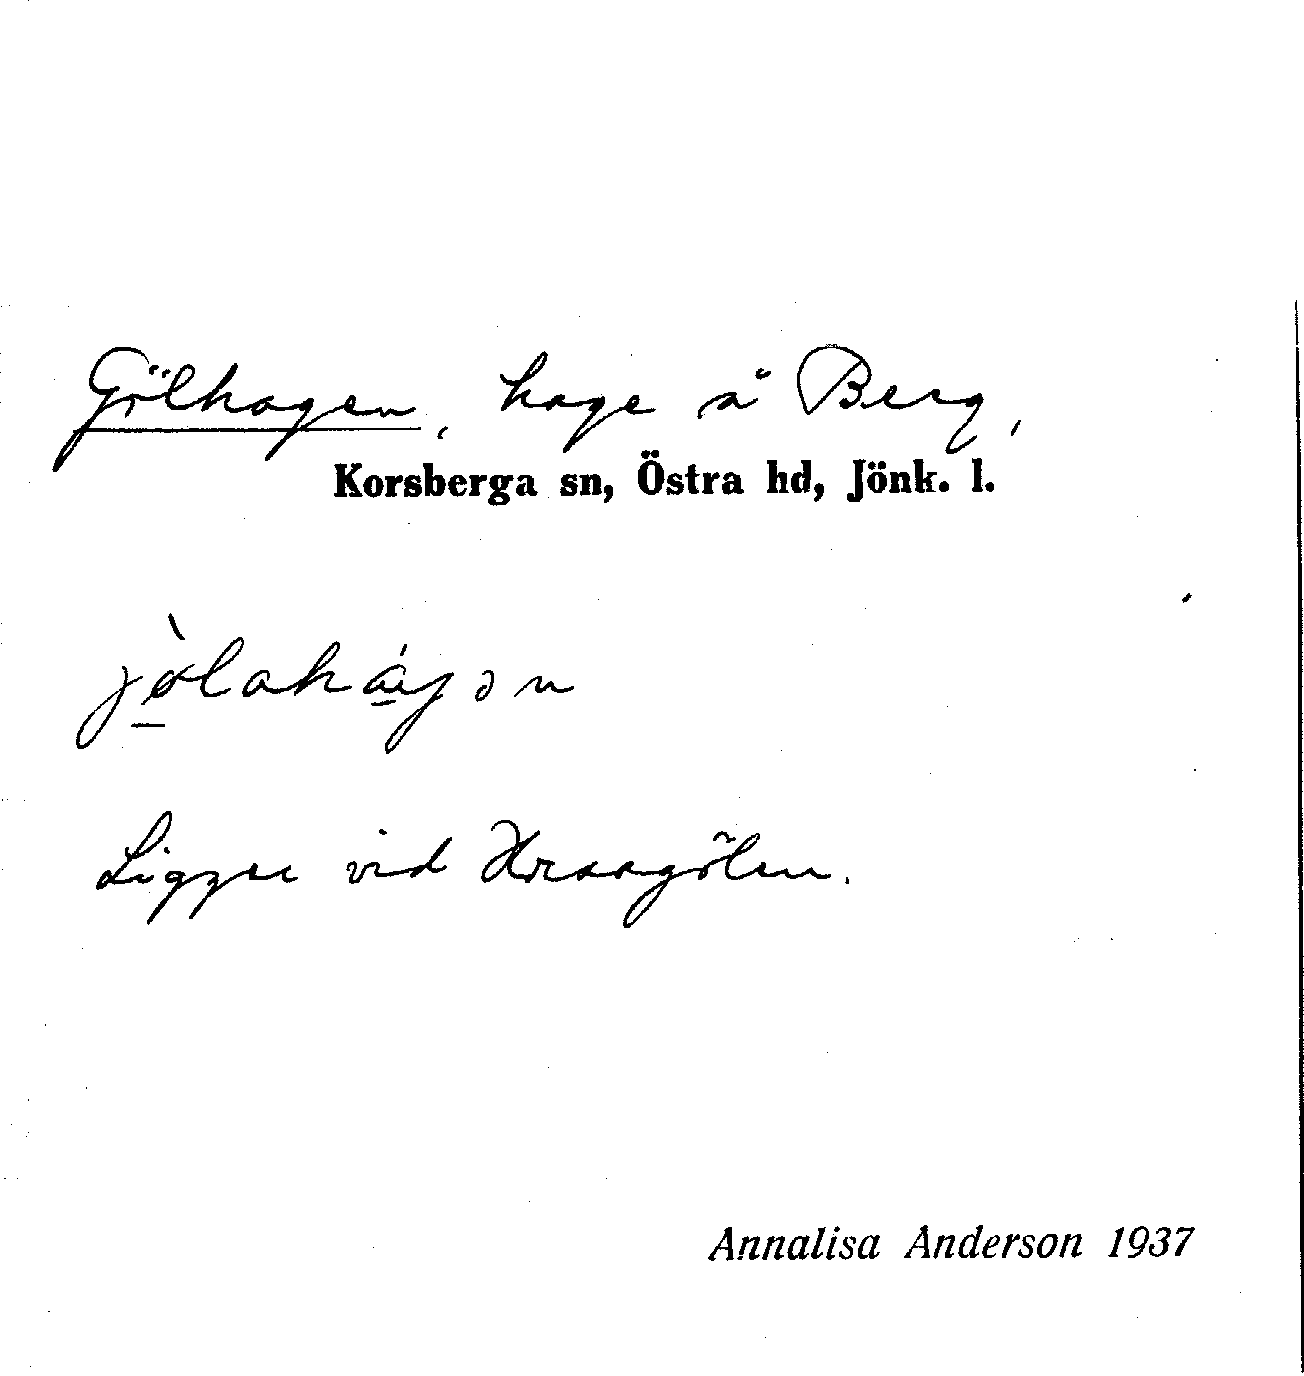 Gölhagen, hage å Berg,
Korsberga sn, Östra hd, Jönk. l.
jø̀lahágən
Ligger vid
Annalisa Anderson 1937